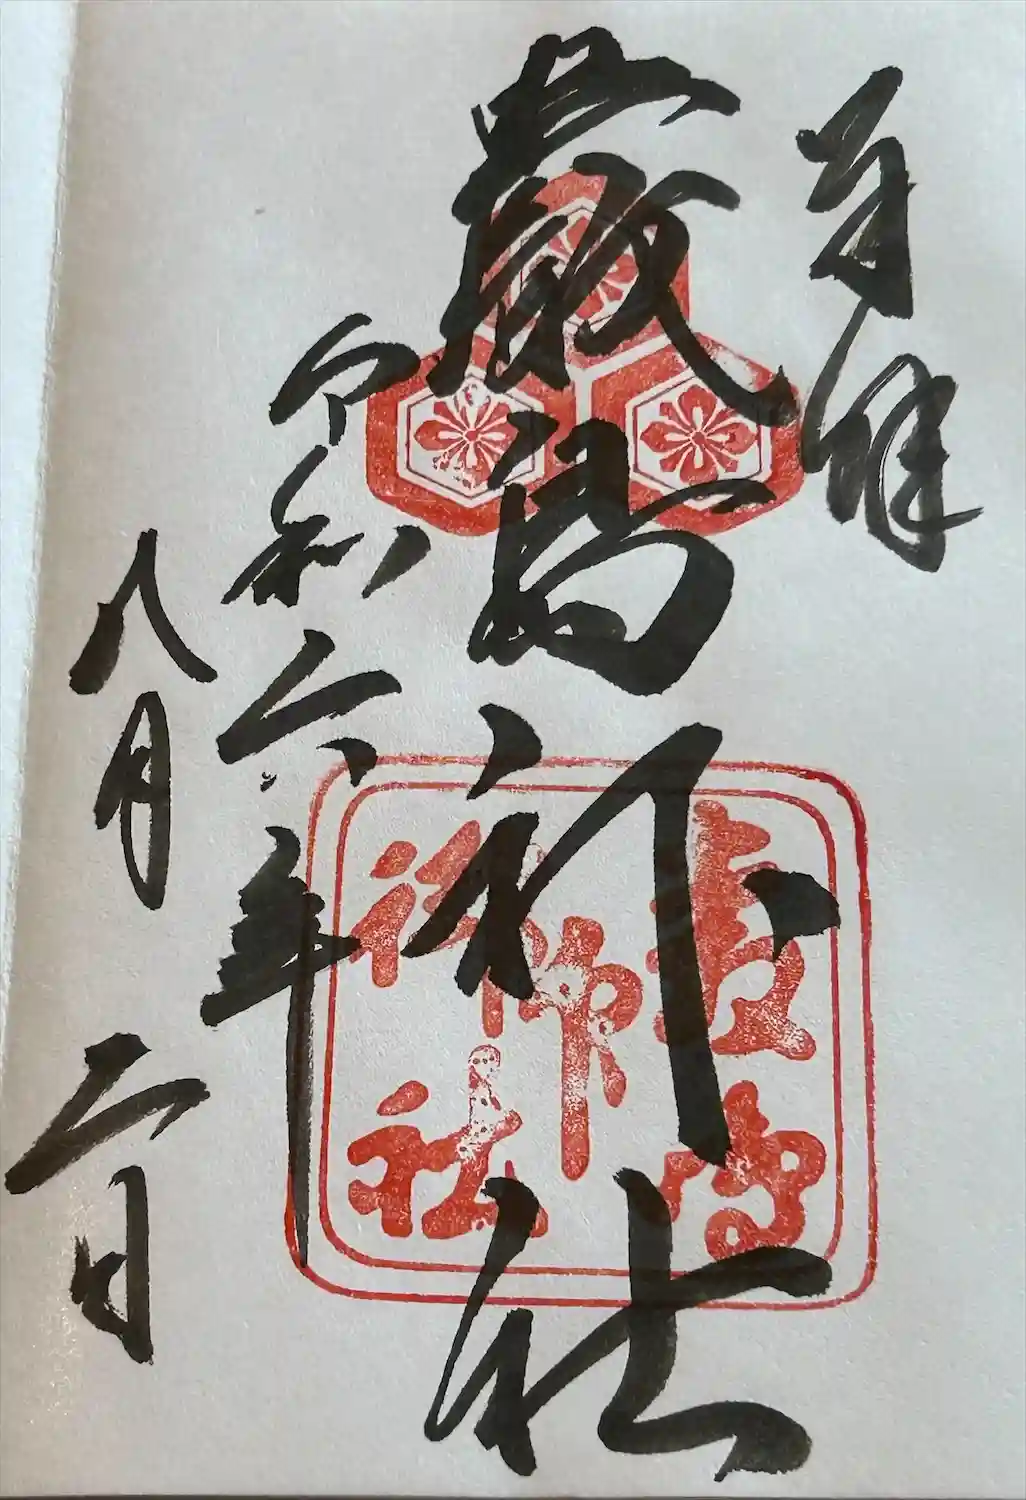 奉拝
厳島神社
令和六年
八月二日
嚴島
神
社